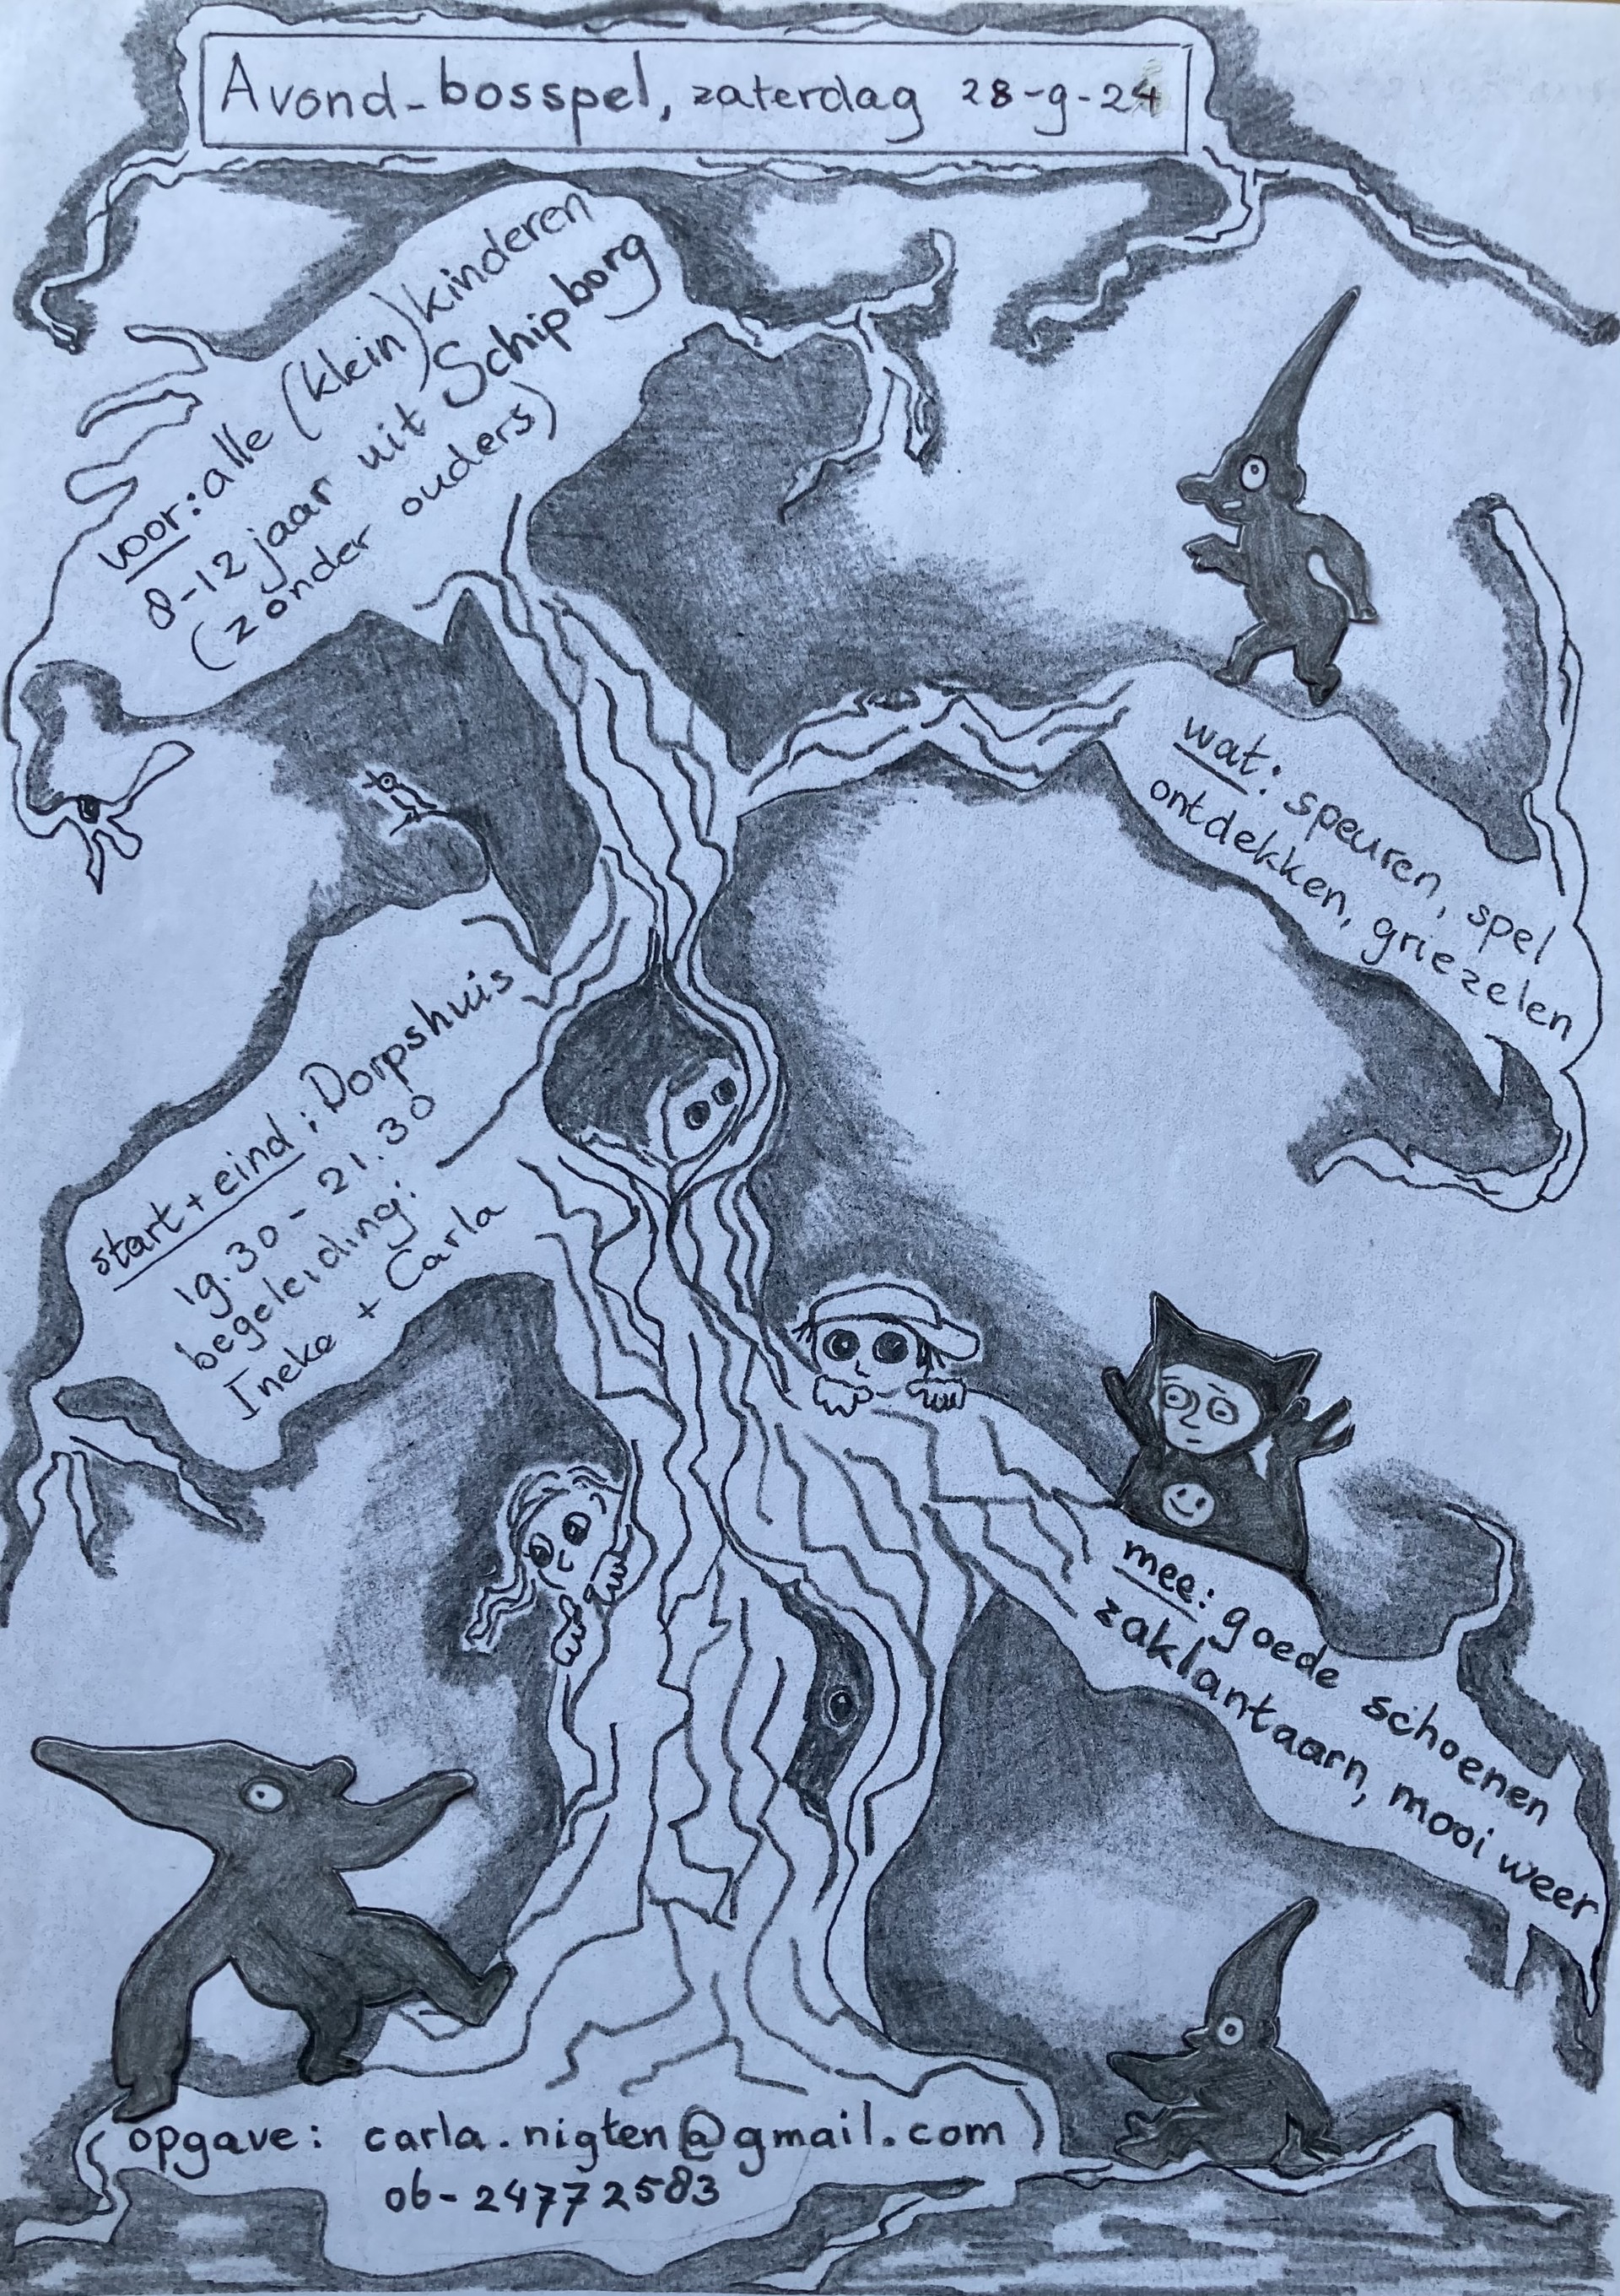 Avond-bosspel, zaterdag 28-9-24
voor: alle (klein)kinderen
8-12 jaar uit Schipborg
(zonder ouders)
wat: speuren, spel
ontdekken, griezelen
start + eind: Dorpshuis
19.30 - 21.30
begeleiding:
Ineke + Carla
mee: goede schoenen
zaklantaarn, mooi weer
opgave: carla.nigten@gmail.com
06-24772583